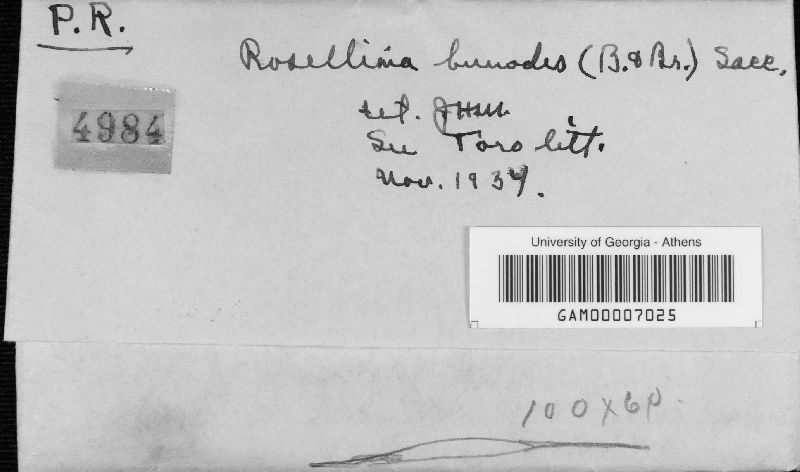 P.R.
Rosellinia bunodes (B. & Br.) Sacc.
4984
det. JHM
See Toro litt.
Nov. 1937.
University of Georgia - Athens
GAM00007025
100 x 6µ.